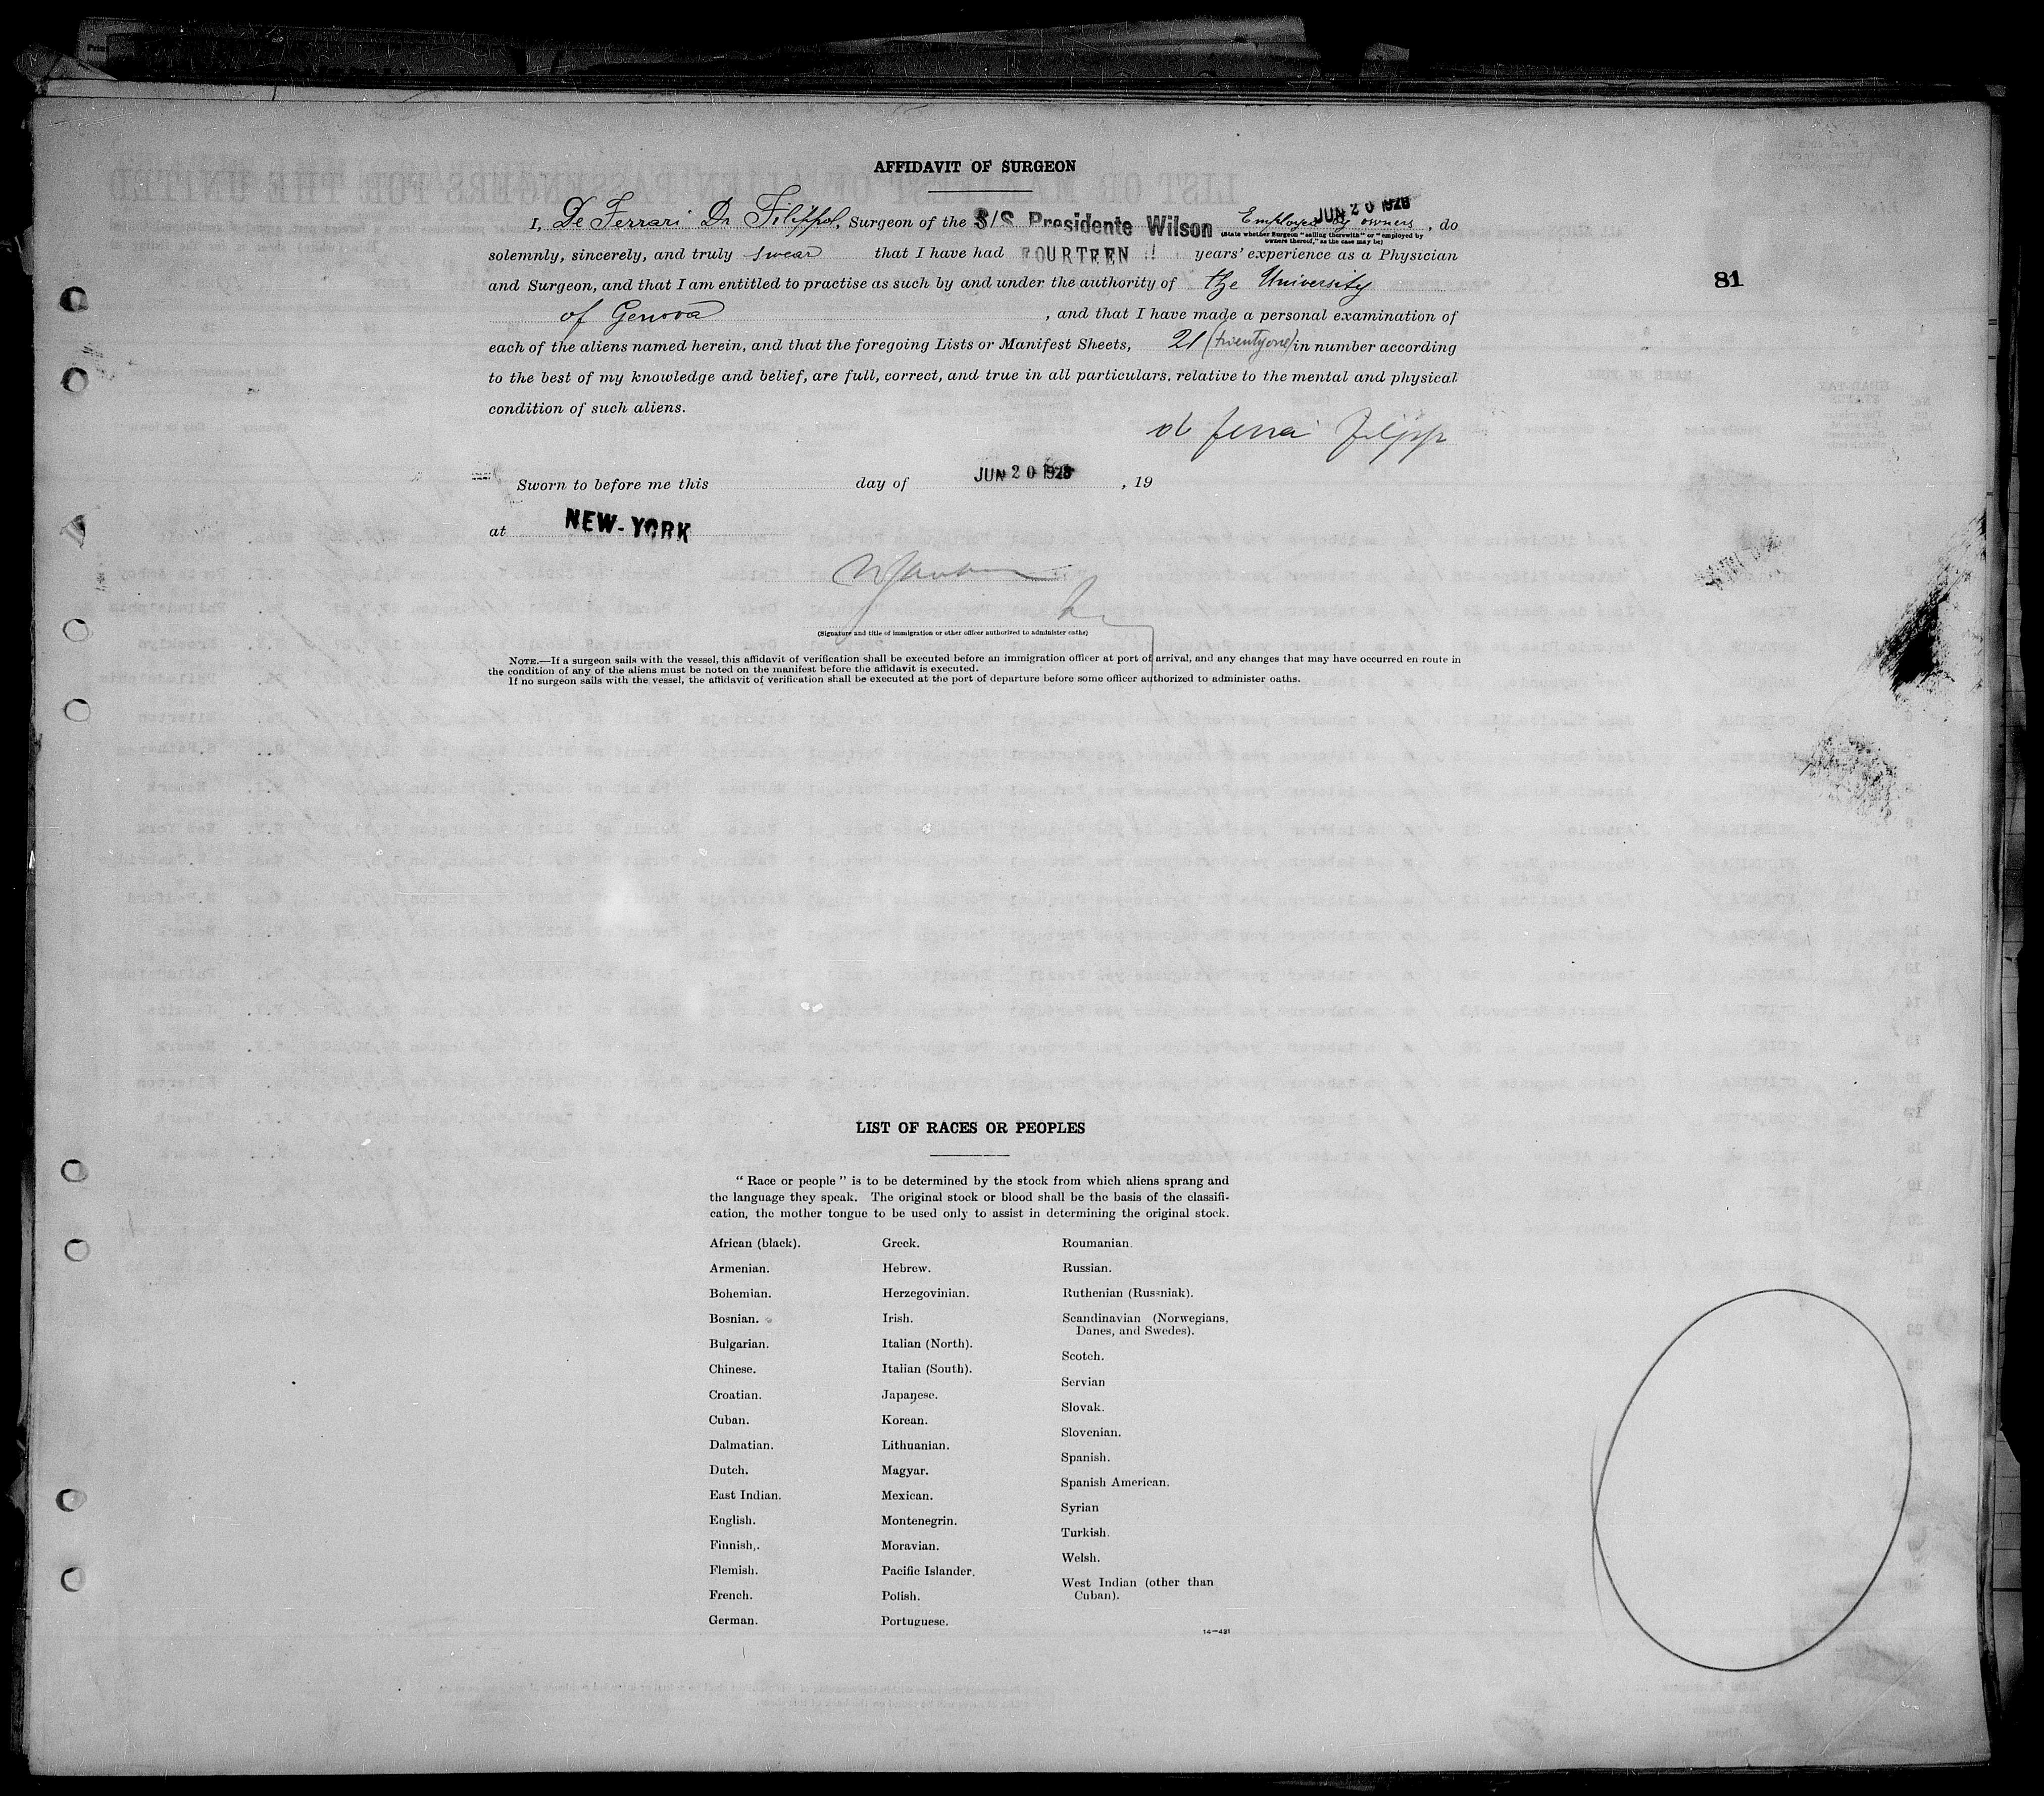 AFFIDAVIT OF SURGEON
JUN 20 1928
I, De Ferrari Dr Filippo, Surgeon of the S/S Presidente Wilson Employed by owners, do
(State whether Surgeon "sailing therewith" or "employed by
owners thereof," as the case may be)
solemnly, sincerely, and truly swear that I have had FOURTEEN years' experience as a Physician
and Surgeon, and that I am entitled to practise as such by and under the authority of the University
81
of Genova, and that I have made a personal examination of
each of the aliens named herein, and that the foregoing Lists or Manifest Sheets, 21 (twentyone) in number according
to the best of my knowledge and belief, are full, correct, and true in all particulars, relative to the mental and physical
condition of such aliens.
Sworn to before me this day of JUN 20 1928, 19
at NEW-YORK
(Signature and title of immigration or other officer authorized to administer oaths)
NOTE.—If a surgeon sails with the vessel, this affidavit of verification shall be executed before an immigration officer at port of arrival, and any changes that may have occurred en route in
the condition of any of the aliens must be noted on the manifest before the affidavit is executed.
If no surgeon sails with the vessel, the affidavit of verification shall be executed at the port of departure before some officer authorized to administer oaths.
LIST OF RACES OR PEOPLES
"Race or people" is to be determined by the stock from which aliens sprang and
the language they speak. The original stock or blood shall be the basis of the classifi-
cation, the mother tongue to be used only to assist in determining the original stock.
African (black).
Armenian.
Bohemian.
Bosnian.
Bulgarian.
Chinese.
Croatian.
Cuban.
Dalmatian.
Dutch.
East Indian.
English.
Finnish.
Flemish.
French.
German.
Greek.
Hebrew.
Herzegovinian.
Irish.
Italian (North).
Italian (South).
Japanese.
Korean.
Lithuanian.
Magyar.
Mexican.
Montenegrin.
Moravian.
Pacific Islander.
Polish.
Portuguese.
Roumanian.
Russian.
Ruthenian (Russniak).
Scandinavian (Norwegians,
Danes, and Swedes).
Scotch.
Servian
Slovak.
Slovenian.
Spanish.
Spanish American.
Syrian
Turkish.
Welsh.
West Indian (other than
Cuban).
14—431